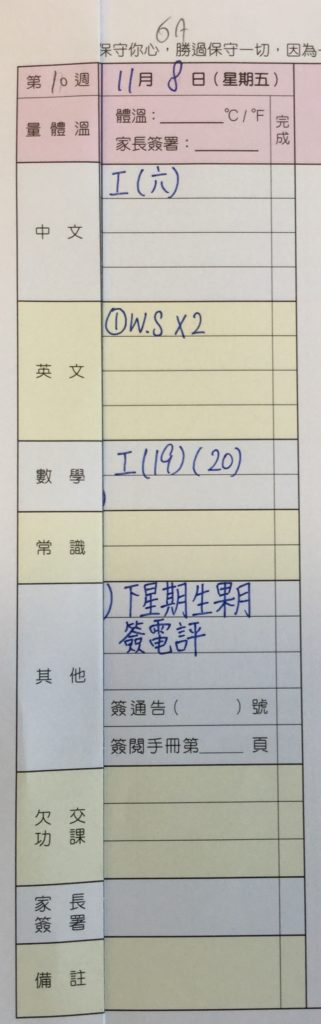 6A
保守你心，勝過保守一切，因為一
第10週 11月8日(星期五)
量體溫 體溫：______°C/°F 完成
家長簽署：______
中文 工(六)
英文 ①W.S X2
數學 工(19)(20)
常識
其他 )下星期生果月
簽電評
簽通告( )號
簽閱手冊第____頁
欠交功課
家長簽署
備註